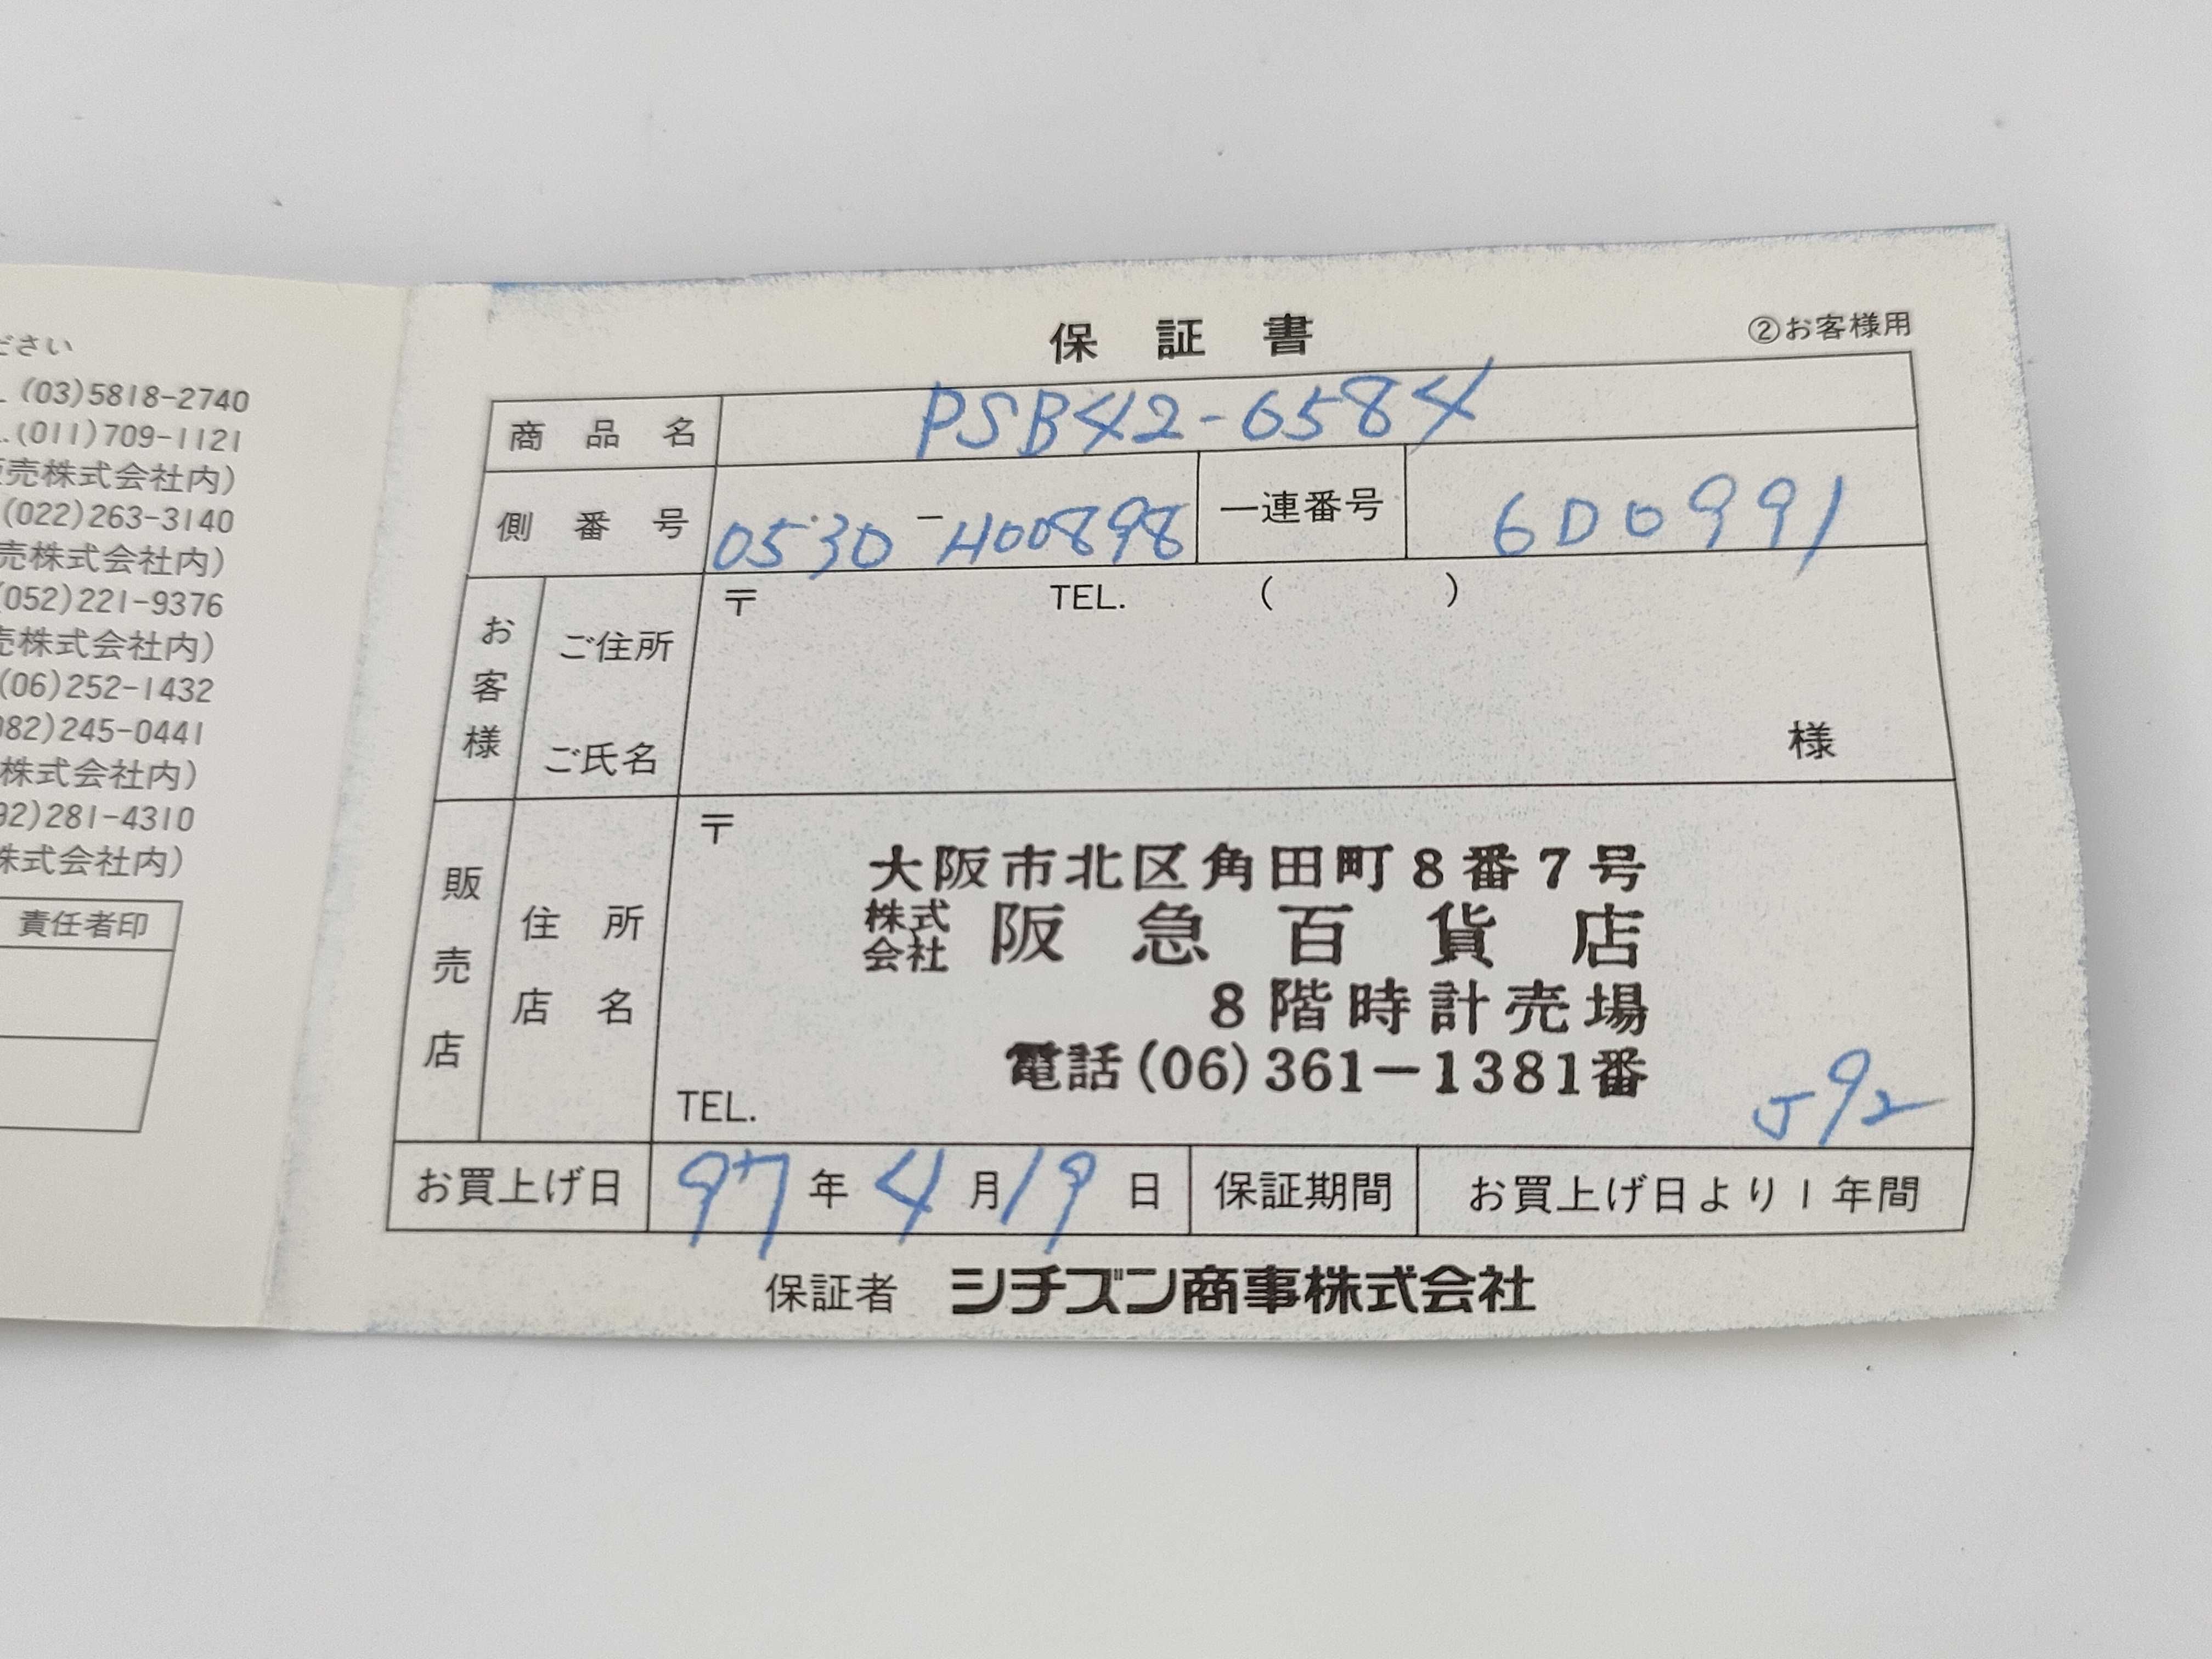 ださい
(03)5818-2740
(011)709-1121
売株式会社内)
(022)263-3140
売株式会社内)
(052)221-9376
売株式会社内)
(06)252-1432
082)245-0441
株式会社内)
92)281-4310
株式会社内)
責任者印
保証書
②お客様用
商品名 PSB42-6584
側番号 0530-H00898 一連番号 6D0991
お客様 ご住所 〒 TEL. ( )
ご氏名 様
販売店 住所 店名 〒
大阪市北区角田町8番7号
株式会社 阪急百貨店
8階時計売場
電話(06)361-1381番
TEL.
J92
お買上げ日 97年4月19日 保証期間 お買上げ日より1年間
保証者 シチズン商事株式会社